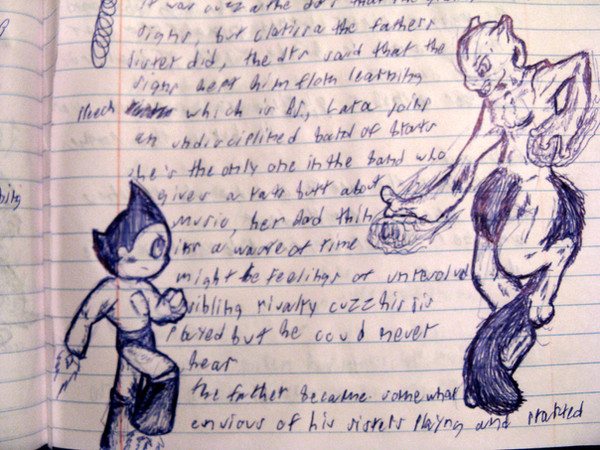 It was cuzz a the drs that the
signs, but clarissa the fathers
sister did, the drs said that the
signs kept him from learning
which is BS, Lara joins
an undisciplined band of brats
she's the only one in the band who
gives a rats butt about
music, her dad thin
its a waste of time
might be feelings of unresolved
sibling rivalry cuzz his sis
played but he could never
hear
the father became somewhat
envious of his sisters playing and